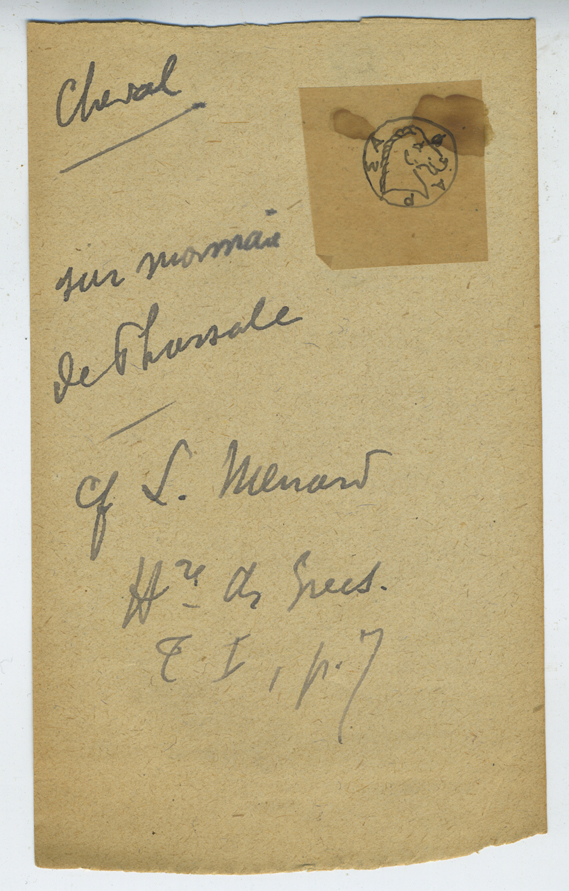 Cheval
ΦAPΣA
sur monnaie
de Pharsale
cf L. Menard
Hre des Grecs.
T I, p. 7